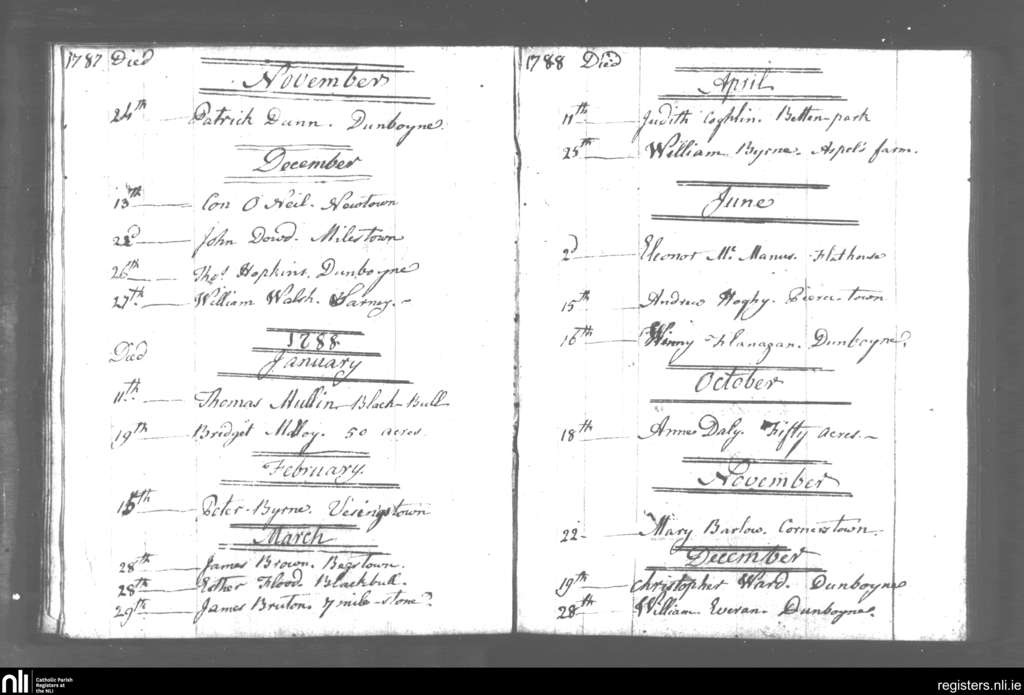 1787 Died
November
24th Patrick Dunn. Dunboyne.
December
13th Con O Neil. Newtown
22d John Dowd. Milestown
26th Thos. Hopkins. Dunboyne
27th. William Walsh. Sarney.
Died 1788
January
11th. Thomas Mullin Black-Bull
19th Bridget Molloy. 50 acres.
February.
15th Peter Byrne. Vesingstown
March
28th James Brown. Begstown.
28th Esther Flood. Blackbull.
29th James Bruton. 7 mile-stone.
1788 Died
April
11th Judith Coghlin. Betten-park
25th William Byrne. Aspel's farm.
June
2d Eleonor Mc. Manus. Flathouse
15th Andrew Hoghy. Pierce-town
16th Winny Flanagan. Dunboyne.
October
18th Anne Daly. Fifty acres.
November
22 Mary Barlow. Cornerstown.
December
19th Christopher Ward. Dunboyne
28th William Everan. Dunboyne.
nli
Catholic Parish
Registers at
the NLI
registers.nli.ie